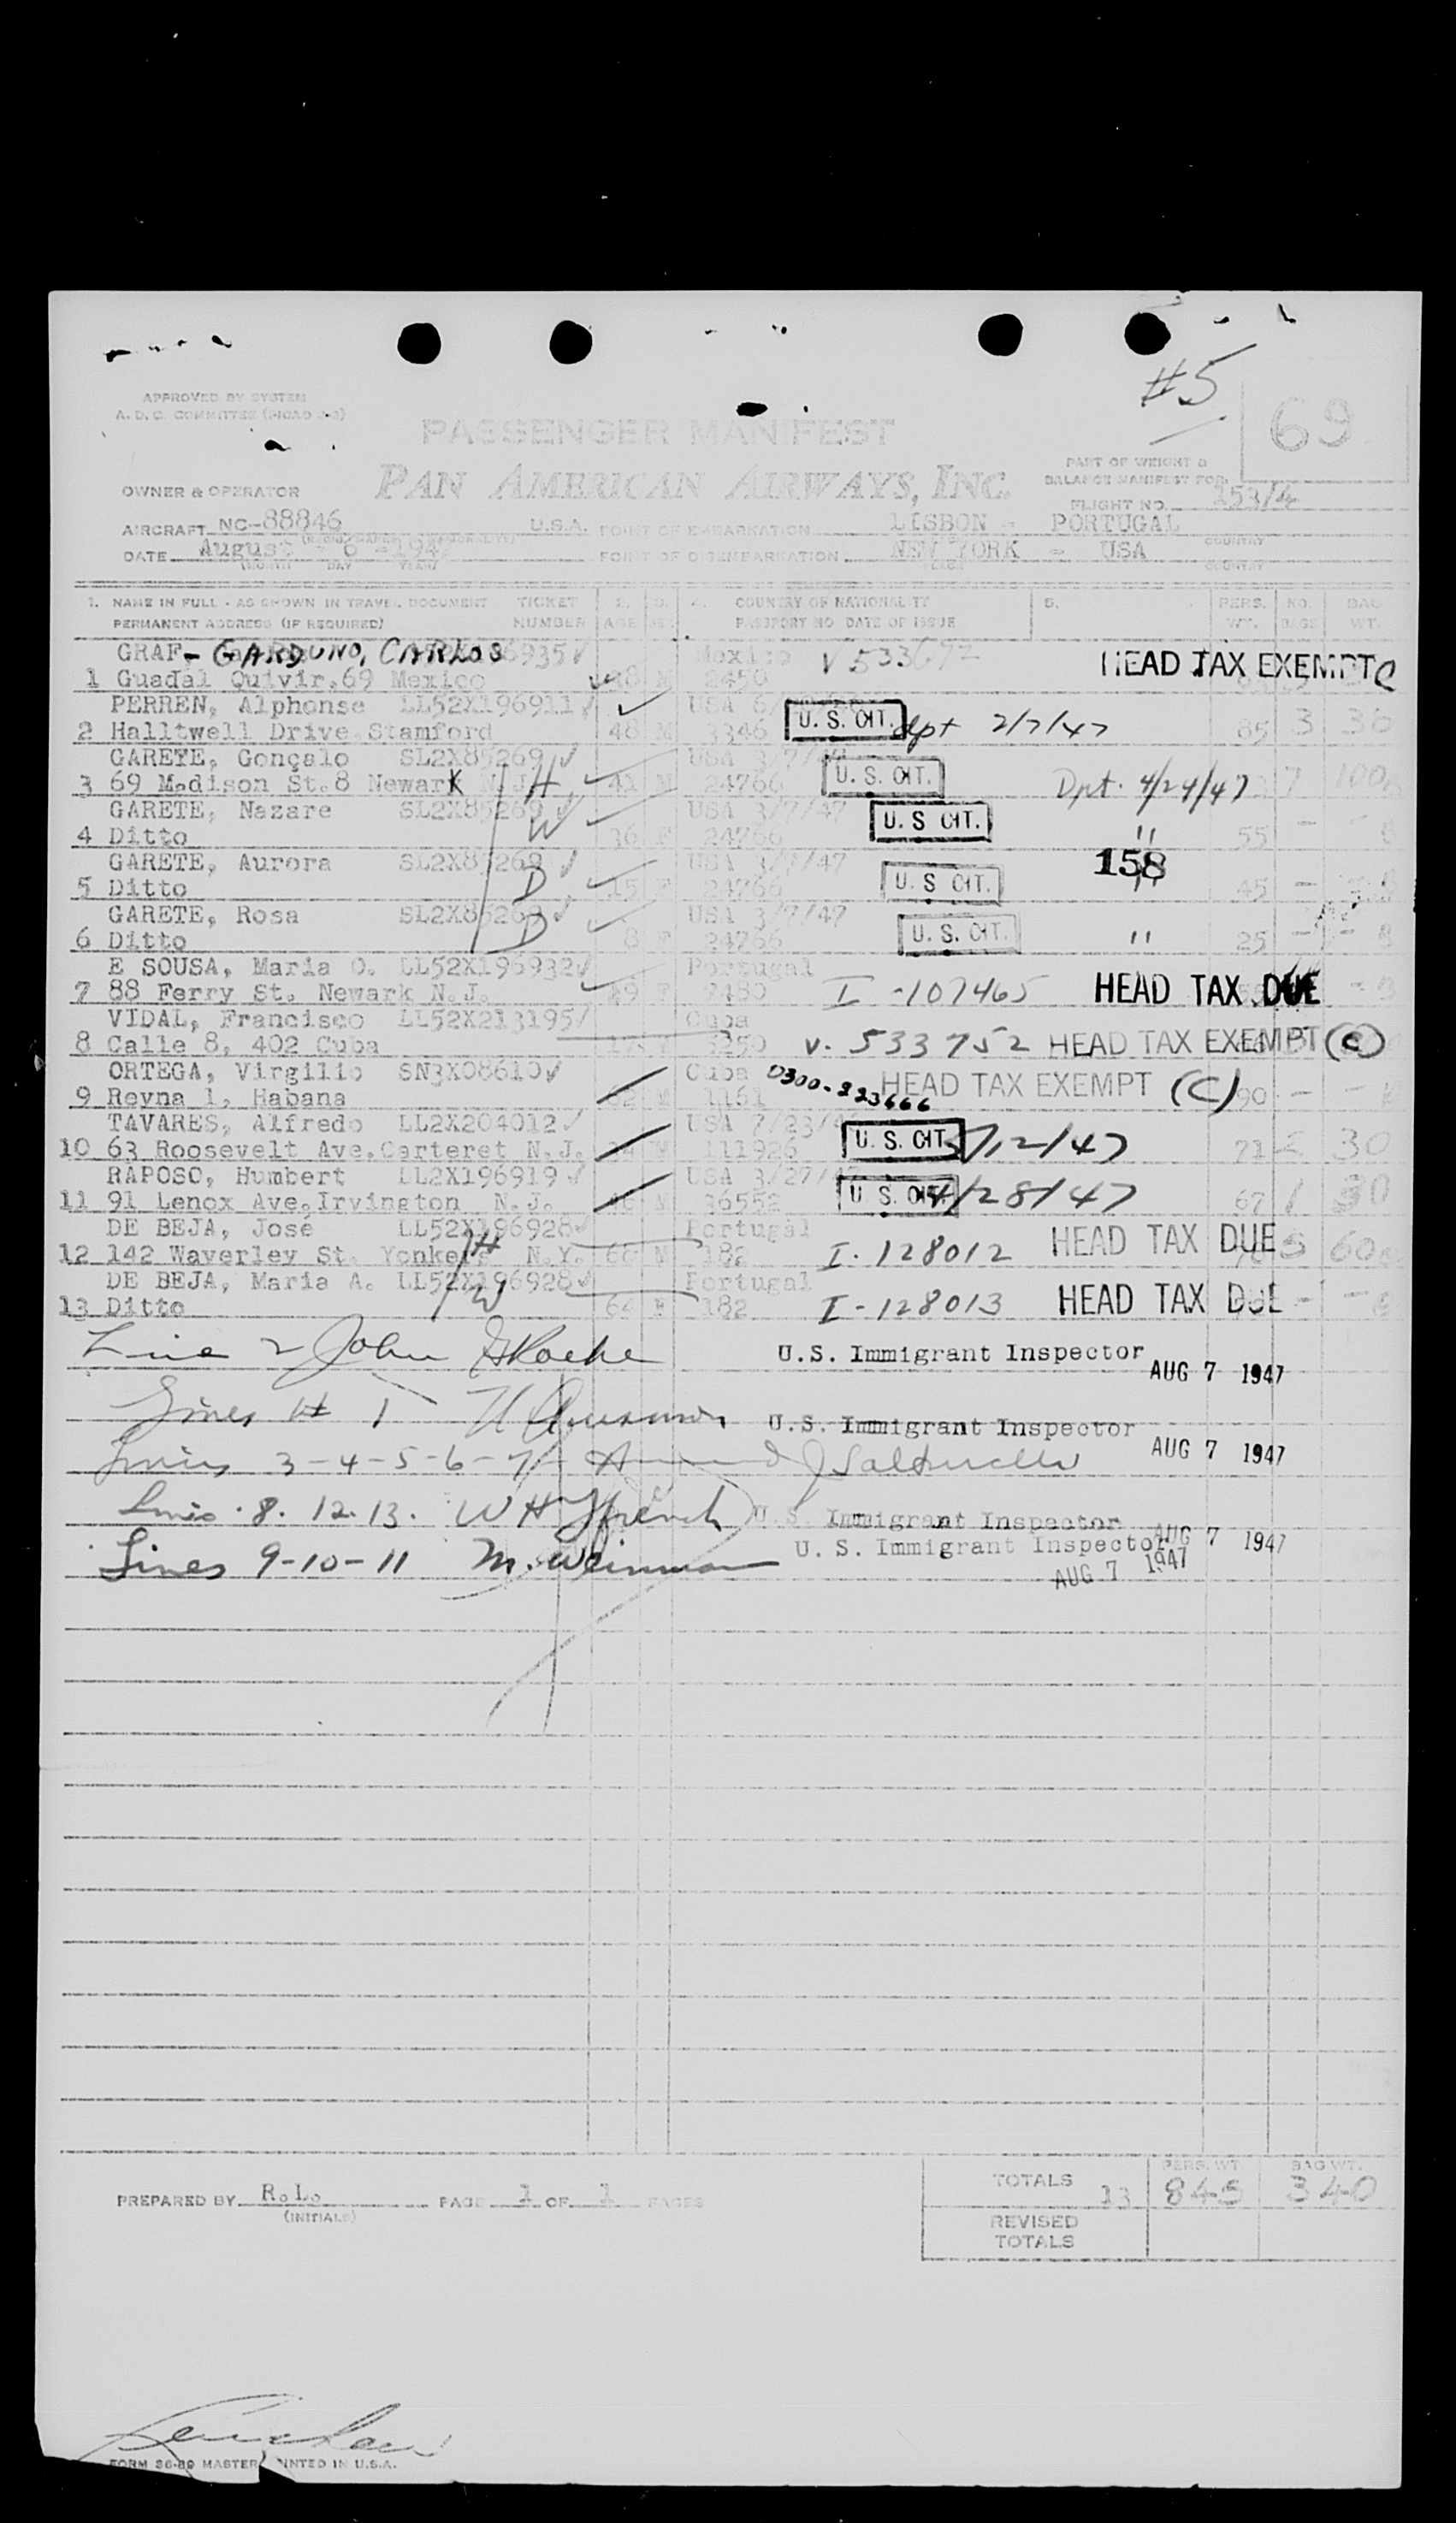 #5
APPROVED BY SYSTEM
A. D. C. COMMITTEE
69
PASSENGER MANIFEST
PAN AMERICAN AIRWAYS, INC.
PART OF WEIGHT &
BALANCE MANIFEST FOR
OWNER & OPERATOR
FLIGHT NO. 153/4
AIRCRAFT NC-88846 U.S.A. POINT OF EMBARKATION LISBON - PORTUGAL
COUNTRY
DATE August - 6 -194 POINT OF DISEMBARKATION NEW YORK - USA
(MONTH DAY YEAR) COUNTRY
1. NAME IN FULL - AS SHOWN IN TRAVEL DOCUMENT TICKET COUNTRY OF NATIONALITY 5. PERS. NO. BAG
PERMANENT ADDRESS (IF REQUIRED) NUMBER AGE SEX PASSPORT NO DATE OF ISSUE WT. BAGS WT.
GRAF - GARDUNO, CARLOS 6935 Mexico V 533692 HEAD TAX EXEMPT C
1 Guadal Quivir.69 Mexico 48 M 2450
PERREN, Alphonse LL52X196911 USA U. S. CIT. dpt 2/7/47
2 Halltwell Drive Stamford 48 M 3346 85 3 36
GARETE, Gonçalo SL2X85269 USA 3/7/47 U. S. CIT.
3 69 Madison St.8 Newark N.J. H 41 M 24766 Dpt. 4/24/47 7 100
GARETE, Nazare SL2X85269 USA 3/7/47 U. S CIT.
4 Ditto W 36 F 24766 " 55 - -
GARETE, Aurora SL2X85269 USA 3/7/47 158
5 Ditto D 15 F 24766 U. S CIT. " 45 -
GARETE, Rosa SL2X85269 USA 3/7/47
6 Ditto D 8 F 24766 U. S. CIT. " 25 - -
E SOUSA, Maria O. LL52X196932 Portugal
7 88 Ferry St. Newark N.J. 49 F 2480 I -107465 HEAD TAX DUE
VIDAL, Francisco LL52X213195 Cuba
8 Calle 8, 402 Cuba 5250 V. 533752 HEAD TAX EXEMPT (C)
ORTEGA, Virgilio SN3X08610 Cuba 0300-223666 HEAD TAX EXEMPT (C)
9 Reyna 1, Habana 62 M 1161 90 - -
TAVARES, Alfredo LL2X204012 USA 7/23/4
10 63 Roosevelt Ave.Carteret N.J. M 111926 U. S. CIT. /12/47 71 30
RAPOSO, Humbert LL2X196919 USA 3/27/47
11 91 Lenox Ave.Irvington N.J. 46 M 36552 U S. CIT. 4/28/47 67 1 30
DE BEJA, José LL52X196928 Portugal
12 142 Waverley St. Yonkers N.Y. H 66 M 182 I. 128012 HEAD TAX DUE 3 60
DE BEJA, Maria A. LL52X196928 Portugal
13 Ditto W 64 F 182 I - 128013 HEAD TAX DUE - -
Line 2 John Roche U.S. Immigrant Inspector AUG 7 1947
Lines # 1 U.S. Immigrant Inspector
Lines 3-4-5-6-7 AUG 7 1947
Lines 8. 12. 13. W H French U. S. Immigrant Inspector AUG 7 1947
Lines 9-10-11 M. Weinman U. S. Immigrant Inspector
AUG 7 1947
TOTALS 13 PERS. WT 845 BAG WT. 340
PREPARED BY R.L. PAGE 1 OF 1 PAGES
(INITIALS)
REVISED
TOTALS
FORM 26-89 MASTER PRINTED IN U.S.A.